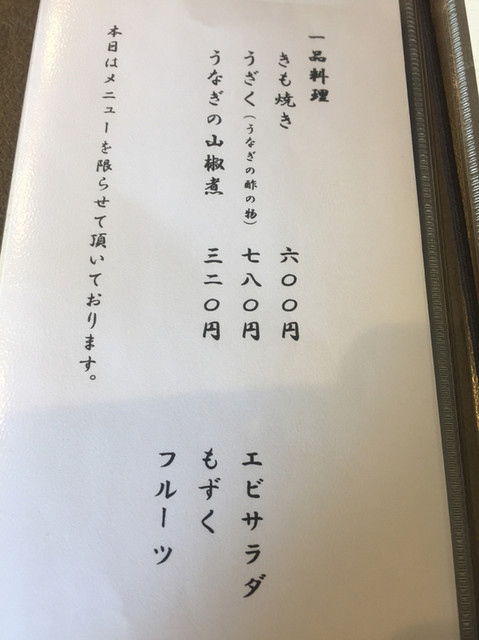 一品料理
きも焼き 六〇〇円
うざく(うなぎの酢の物) 七八〇円
うなぎの山椒煮 三二〇円
エビサラダ
もずく
フルーツ
本日はメニューを限らせて頂いております。